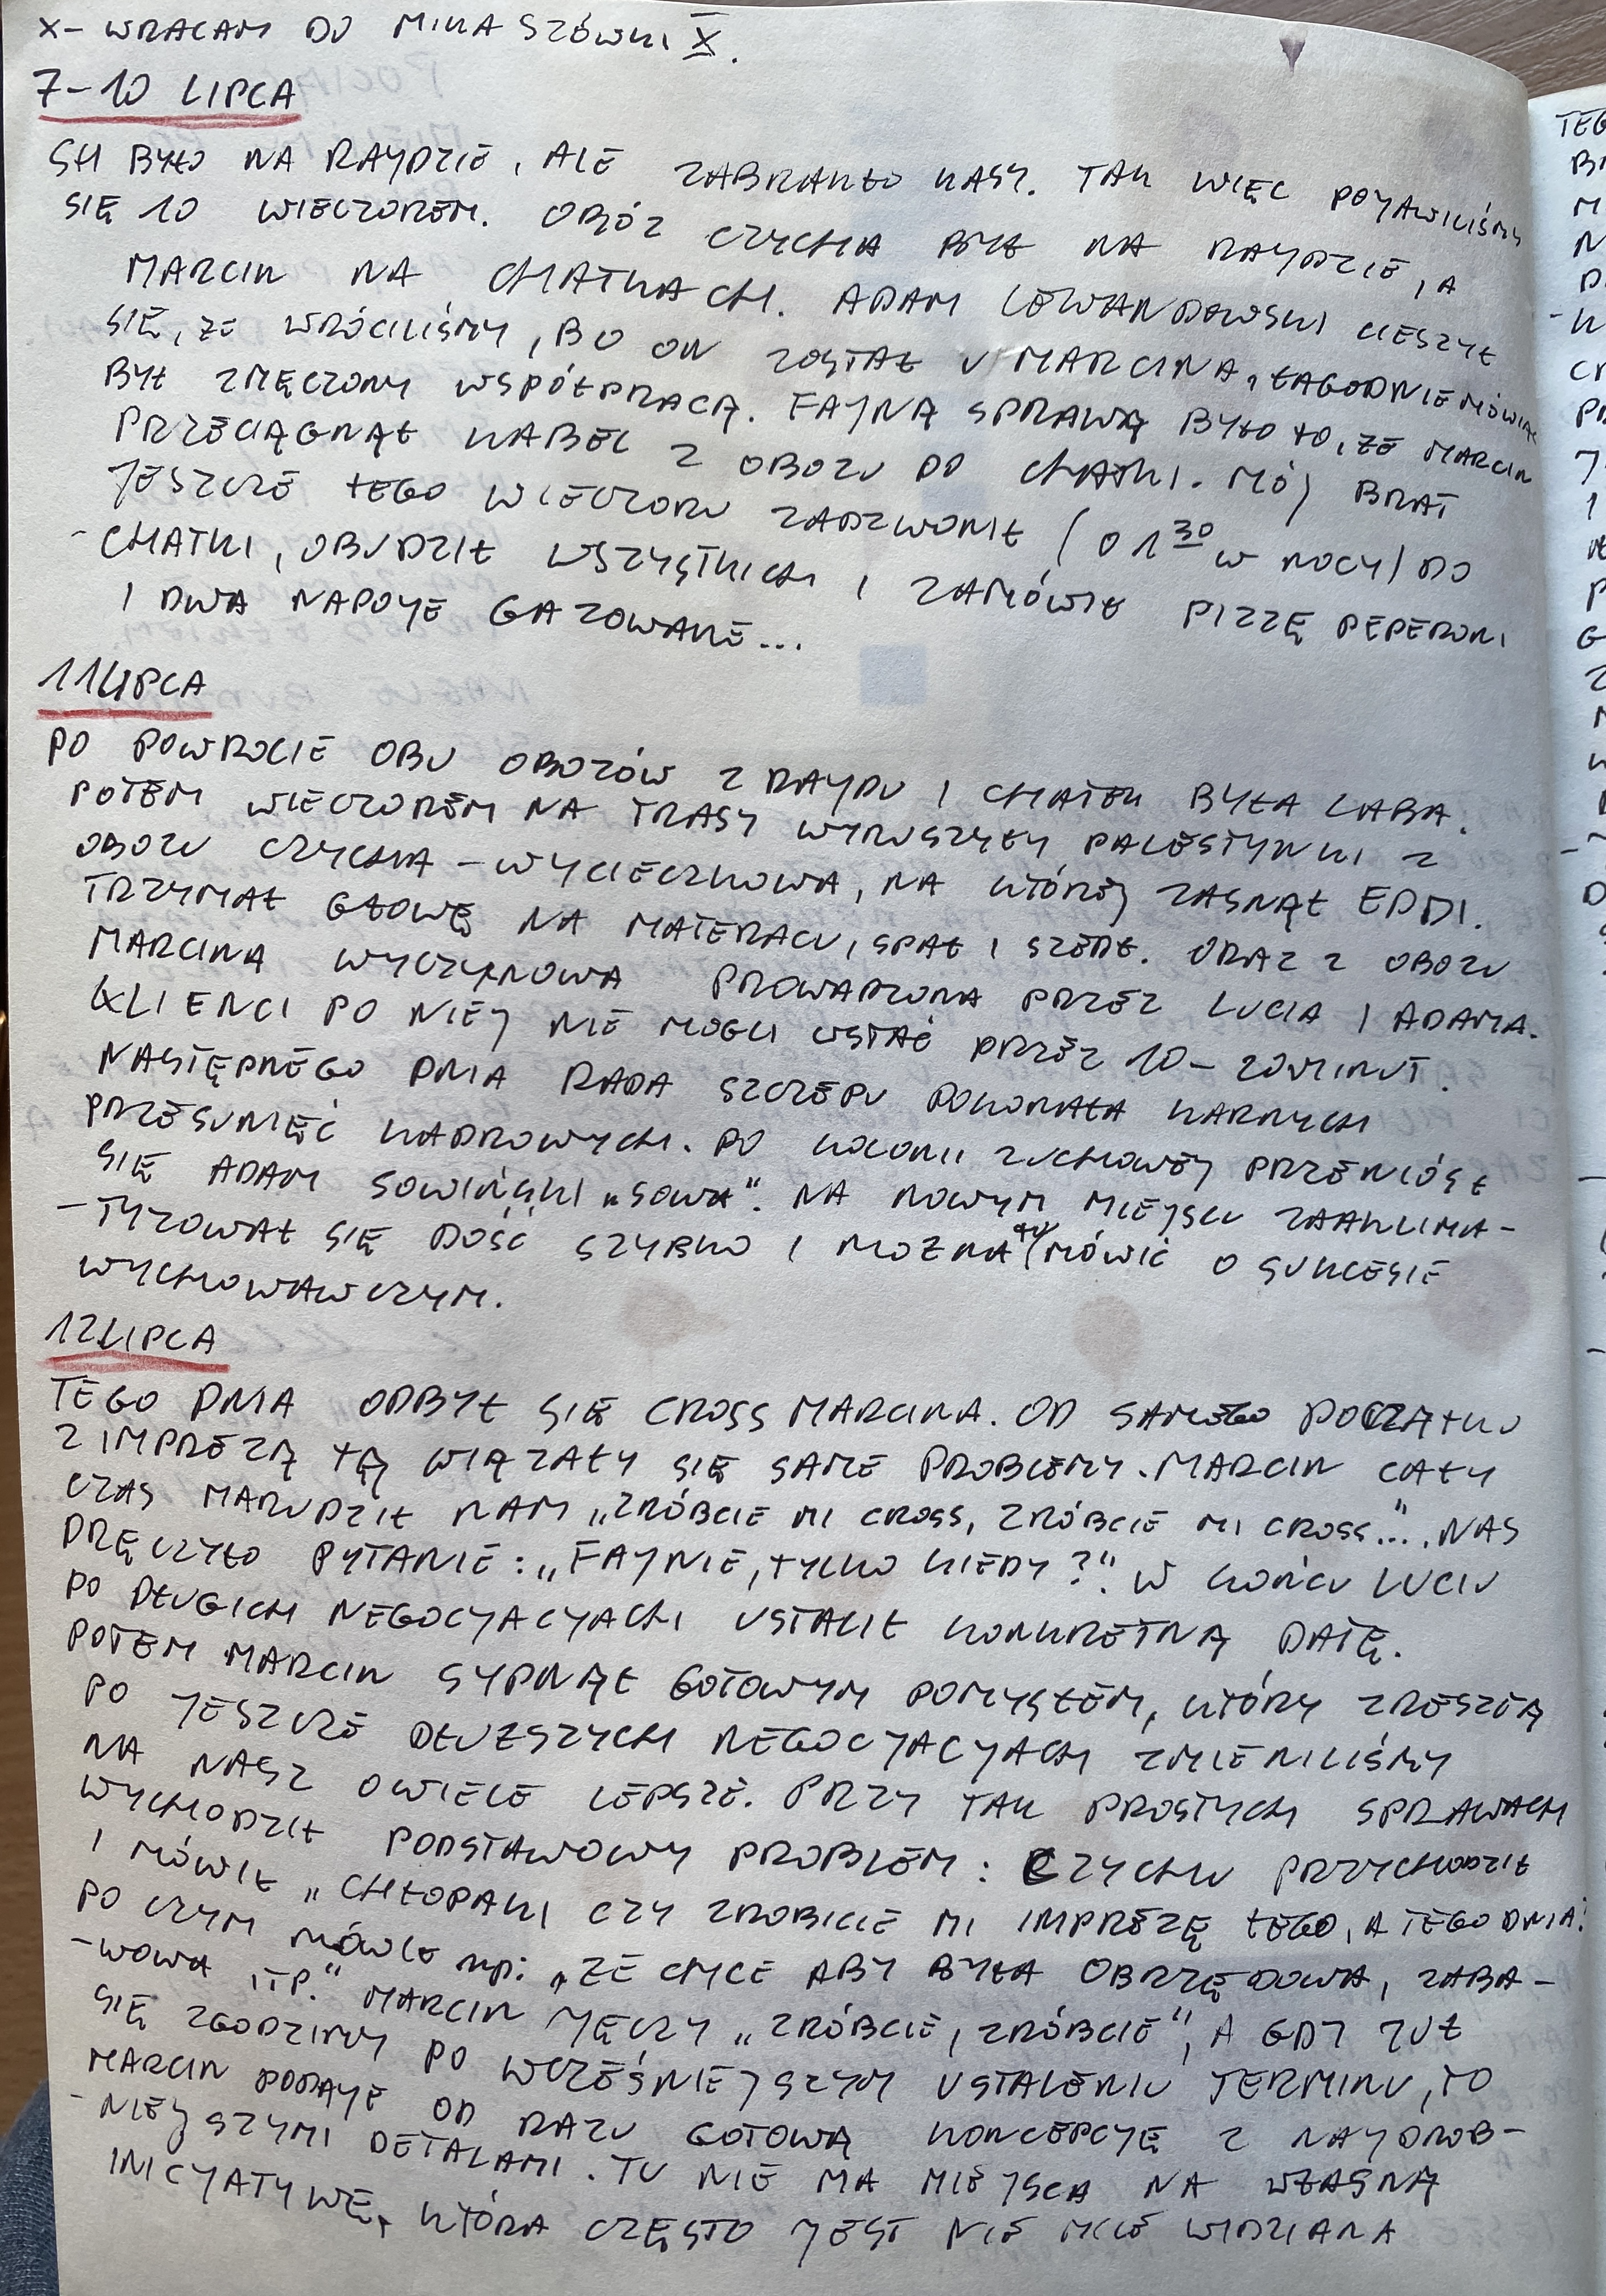 X- WRACAM DO MIKASZÓWKI X.
7-10 LIPCA
SH BYŁO NA RAJDZIE, ALE ZABRAKŁO KASY. TAK WIĘC POJAWILIŚMY
SIĘ 10 WIECZOREM. OBÓZ CZYCHA BYŁ NA RAJDZIE, A
MARCIN NA CHATKACH. ADAM LEWANDOWSKI CIESZYŁ
SIĘ, ŻE WRÓCILIŚMY, BO ON ZOSTAŁ U MARCINA, ŁAGODNIE MÓWIĄC
BYŁ ZMĘCZONY WSPÓŁPRACĄ. FAJNĄ SPRAWĄ BYŁO TO, ŻE MARCIN
PRZECIĄGNĄŁ KABEL Z OBOZU DO CHATKI. MÓJ BRAT
JESZCZE TEGO WIECZORU ZADZWONIŁ (O 1 30 W NOCY) DO
-CHATKI, OBUDZIŁ WSZYSTKICH I ZAMÓWIŁ PIZZĘ PEPERONI
I DWA NAPOJE GAZOWANE...
11 LIPCA
PO POWROCIE OBU OBOZÓW Z RAJDU I CHATEK BYŁA LABA.
POTEM WIECZOREM NA TRASY WYRUSZYŁY PALESTYNKI Z
OBOZU CZYCHA - WYCIECZKOWA, NA KTÓREJ ZASNĄŁ EDDI.
TRZYMAŁ GŁOWĘ NA MATERACU, SPAŁ I SZEDŁ. ORAZ Z OBOZU
MARCINA WYCZYNOWA PROWADZONA PRZEZ LUCIA I ADAMA.
KLIENCI PO NIEJ NIE MOGLI WSTAĆ PRZEZ 10-20 MINUT.
NASTĘPNEGO DNIA RADA SZCZEPU DOKONAŁA KARNYCH
PRZESUNIĘĆ KADROWYCH. PO KOLONII ZUCHOWEJ PRZENIÓSŁ
SIĘ ADAM SOWIŃSKI „SOWA". NA NOWYM MIEJSCU ZAAKLIMA-
-TYZOWAŁ SIĘ DOŚĆ SZYBKO I MOŻNA TU MÓWIĆ O SUKCESIE
WYCHOWAWCZYM.
12 LIPCA
TEGO DNIA ODBYŁ SIĘ CROSS MARCINA. OD SAMEGO POCZĄTKU
Z IMPREZĄ TĄ WIĄZAŁY SIĘ SAME PROBLEMY. MARCIN CAŁY
CZAS MARUDZIŁ NAM „ZRÓBCIE MI CROSS, ZRÓBCIE MI CROSS...". NAS
DRĘCZYŁO PYTANIE: „FAJNIE, TYLKO KIEDY?". W KOŃCU LUCIU
PO DŁUGICH NEGOCJACJACH USTALIŁ KONKRETNĄ DATĘ.
POTEM MARCIN SYPNĄŁ GOTOWYM POMYSŁEM, KTÓRY ZRESZTĄ
PO JESZCZE DŁUŻSZYCH NEGOCJACJACH ZMIENILIŚMY
NA NASZ OWIELE LEPSZE. PRZY TAK PROSTYCH SPRAWACH
WYCHODZIŁ PODSTAWOWY PROBLEM: CZYCHU PRZYCHODZIŁ
I MÓWIŁ „CHŁOPAKI CZY ZROBICIE MI IMPREZĘ TEGO, A TEGO DNIA"
PO CZYM MÓWIŁ np: „ŻE CHCE ABY BYŁA OBRZĘDOWA, ZABA-
-WOWA ITP." MARCIN JĘCZY „ZRÓBCIE, ZRÓBCIE", A GDY JUŻ
SIĘ ZGODZIMY PO WCZEŚNIEJSZYM USTALENIU TERMINU, TO
MARCIN PODAJE OD RAZU GOTOWĄ KONCEPCJĘ Z NAJDROB-
-NIEJSZYMI DETALAMI. TU NIE MA MIEJSCA NA WŁASNĄ
INICJATYWĘ, KTÓRA CZĘSTO JEST NIE MILE WIDZIANA